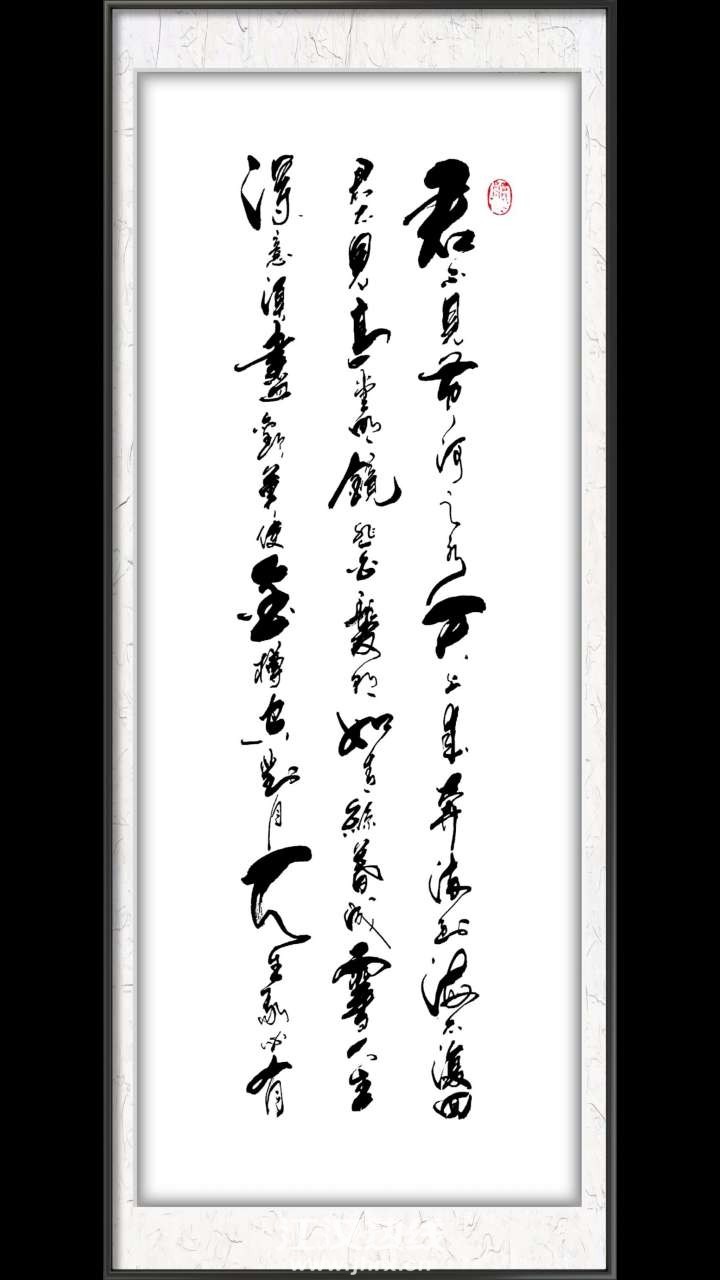 君不見黃河之水天上來奔流到海不復回
君不見高堂明鏡悲白髮朝如青絲暮成雪人生
得意須盡歡莫使金樽空對月天生我必有